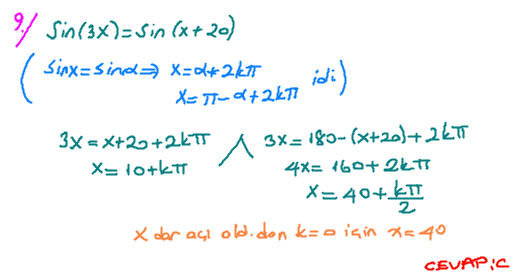 9./ Sin(3x)=Sin(x+20)
(Sinx=Sinα⇒ x=α+2kπ
x=π-α+2kπ idi)
3x=x+20+2kπ ∧ 3x=180-(x+20)+2kπ
x=10+kπ 4x=160+2kπ
x=40+kπ/2
x dar açı old.dan k=0 için x=40
CEVAP:C